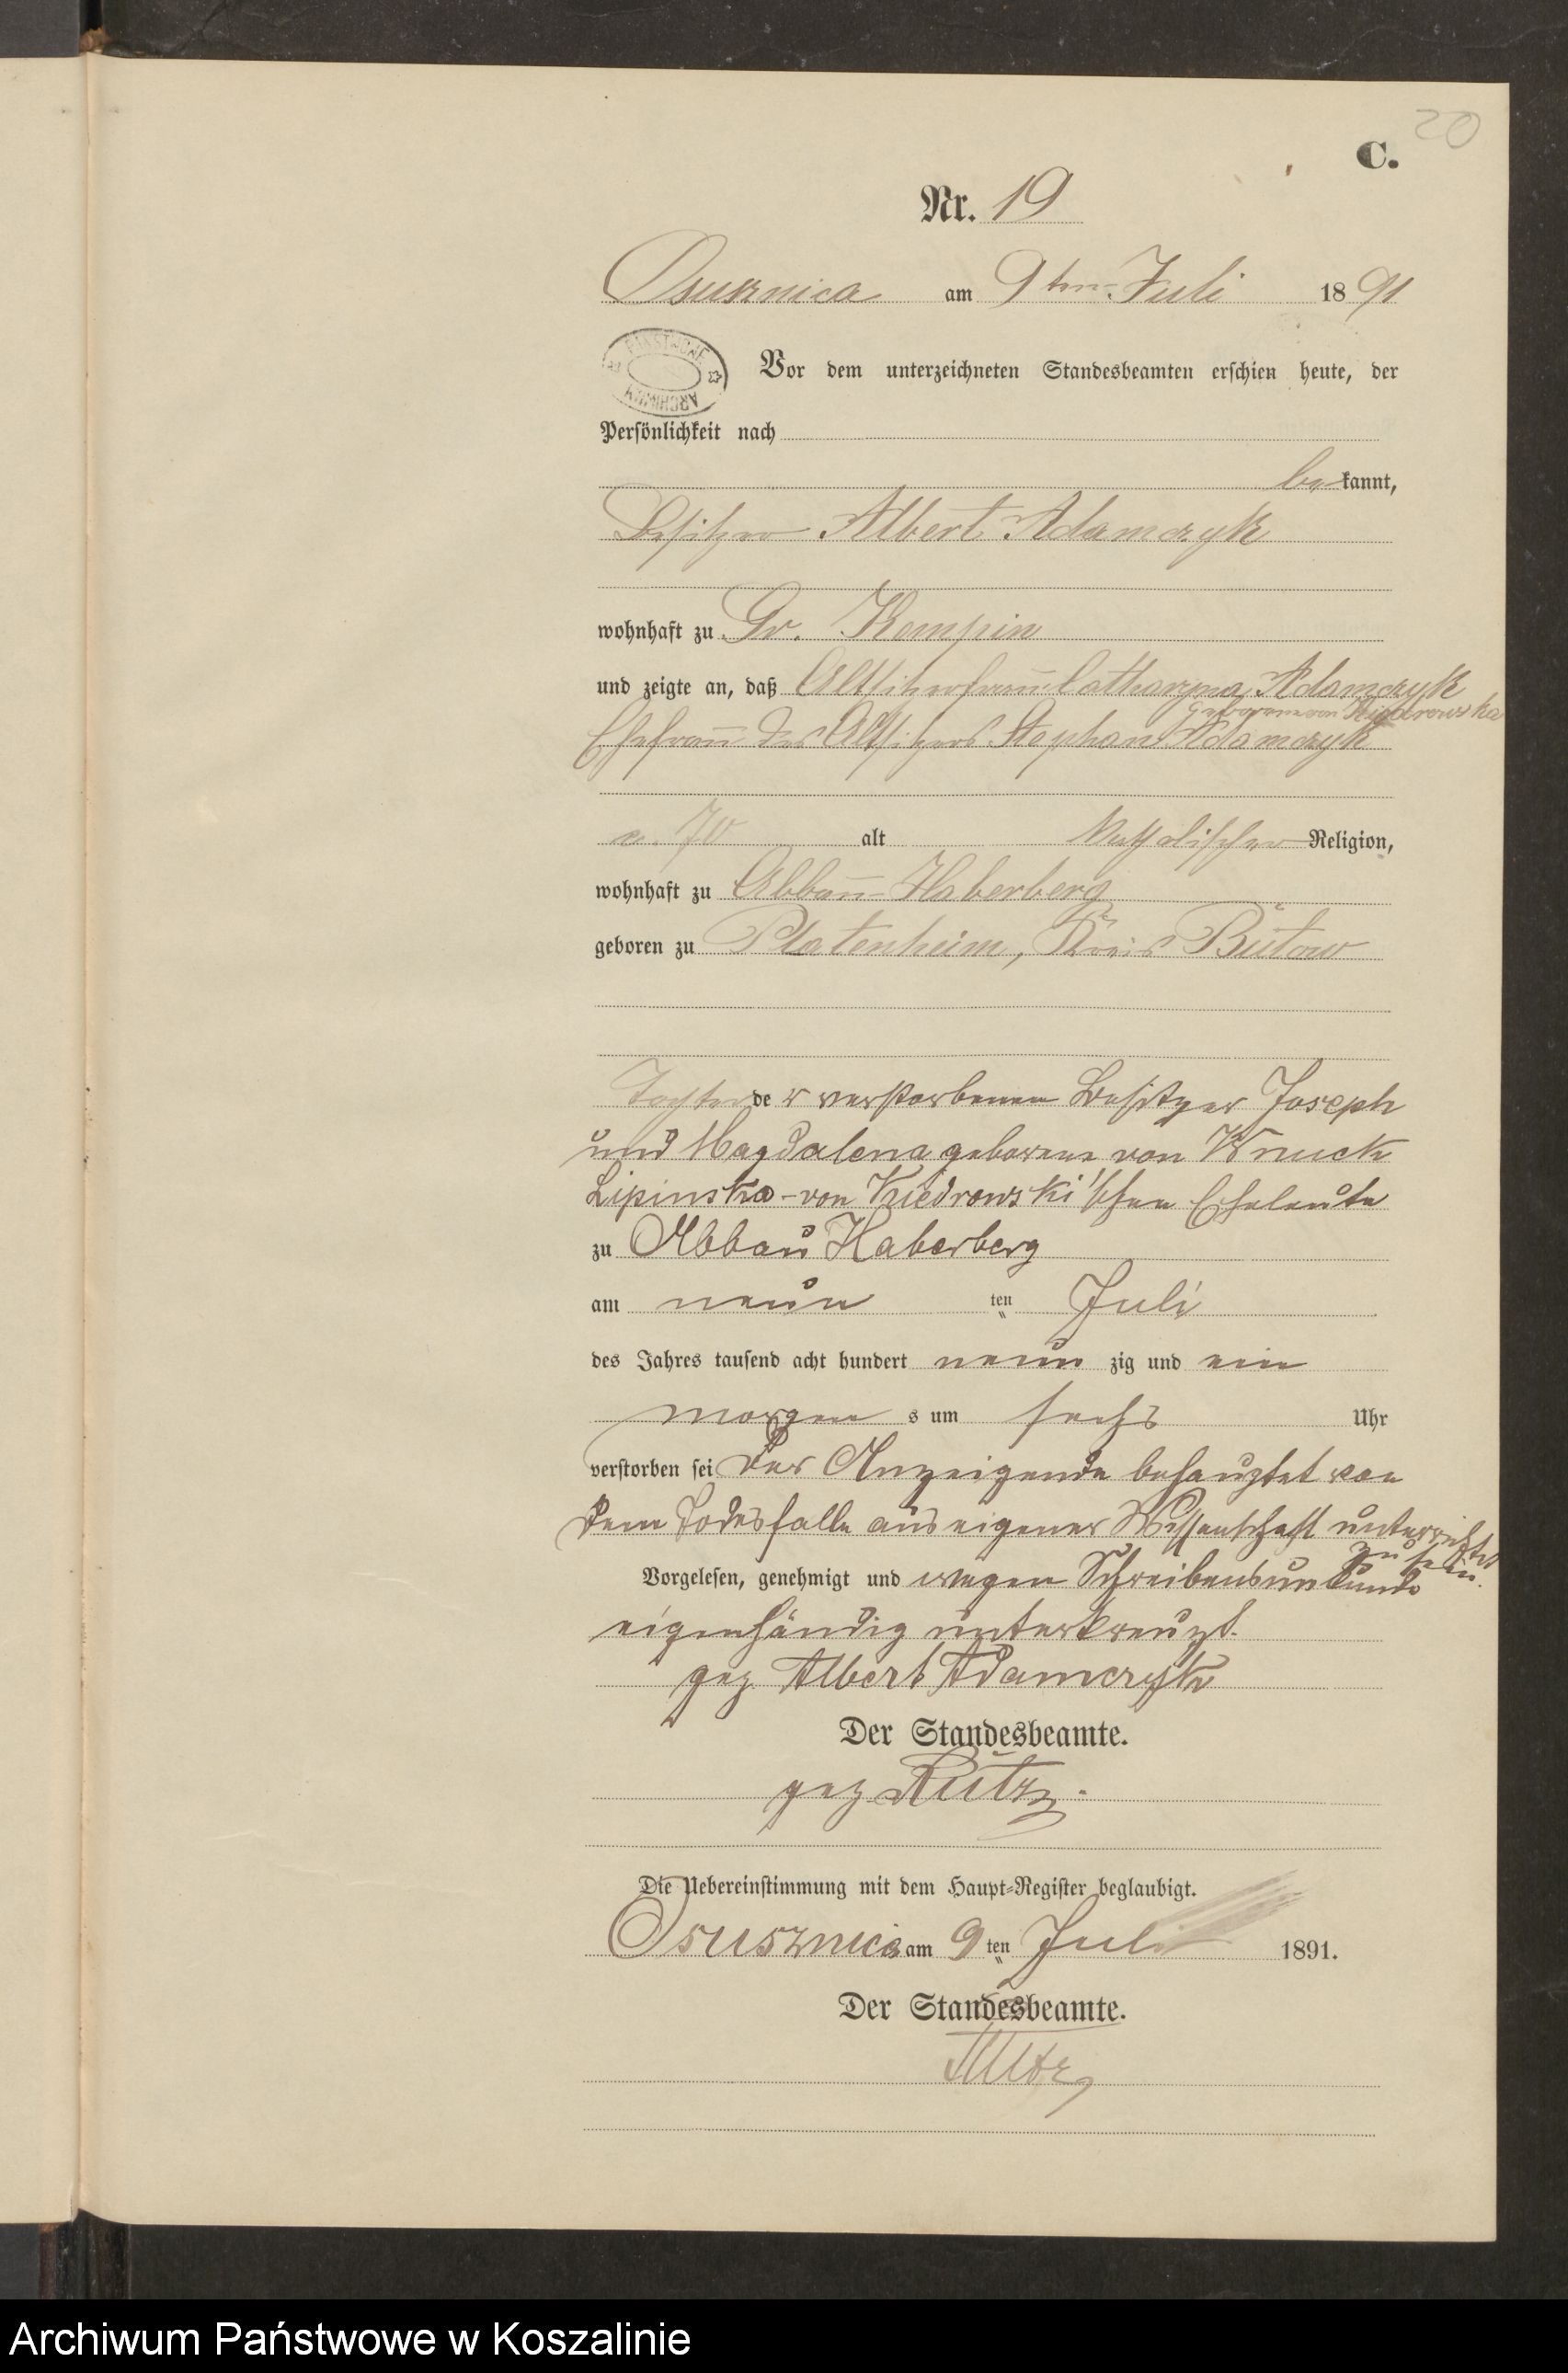 20
C.
Nr. 19
Osusznica am 9ten Juli 1891
PAŃSTWOWE
ARCHIWUM
Vor dem unterzeichneten Standesbeamten erschien heute, der
Persönlichkeit nach
bekannt,
Besitzer Albert Adamczyk
wohnhaft zu Gr. Kempin
und zeigte an, daß Altsitzerfrau Catharyna Adamczyk
geborene von Kiedrowska
Ehefrau des Altsitzers Stephan Adamczyk
70 alt katholischer Religion,
wohnhaft zu Abbau Haberberg
geboren zu Platenheim, Kreis Bütow
Tochter der verstorbenen Besitzer Joseph
und Magdalena geborene von Wnuck
Lipinska-von Kiedrowski'schen Eheleute
zu Abbau Haberberg
am neun ten Juli
des Jahres tausend acht hundert neunzig und ein
morgens um sechs Uhr
verstorben sei Der Anzeigende behauptet von
dem Todesfalle aus eigener Wissenschaft unterrichtet
zu sein.
Vorgelesen, genehmigt und wegen Schreibensunkunde
eigenhändig unterkreuzt.
gez Albert Adamczyk
Der Standesbeamte.
gez Rütz.
Die Uebereinstimmung mit dem Haupt-Register beglaubigt.
Osusznica am 9ten Juli 1891.
Der Standesbeamte.
Rütz
Archiwum Państwowe w Koszalinie